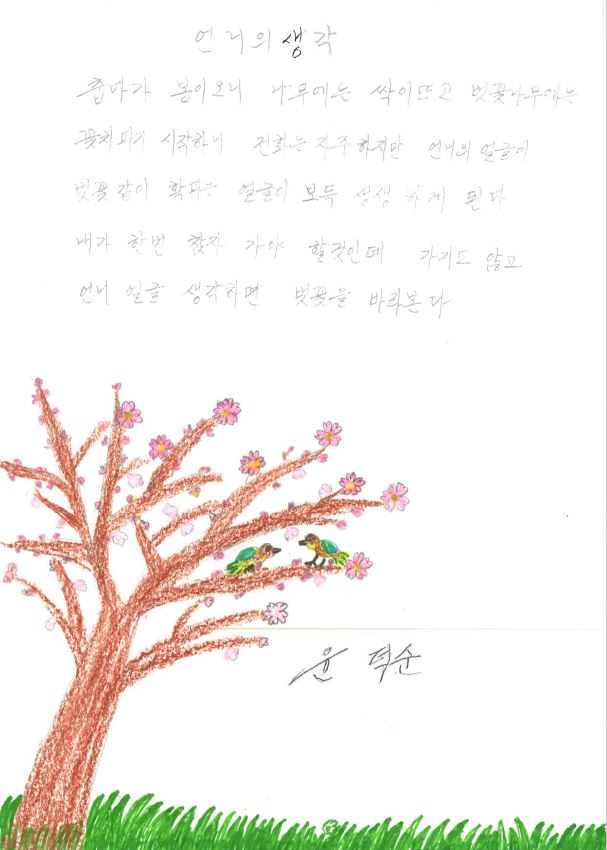 언니의 생각
춥다가 봄이오니 나무에는 싹이뜨고 벚꽃나무에는
꽃치피기 시작하니 전화는 자주하지만 언니의 얼굴이
벚꽃같이 확피는 얼굴이 모득 생생하게 된다
내가 한번 찾자 가야 할것인데 가지도 않고
언니 얼굴 생각하면 벚꽃을 바라본다
윤덕순